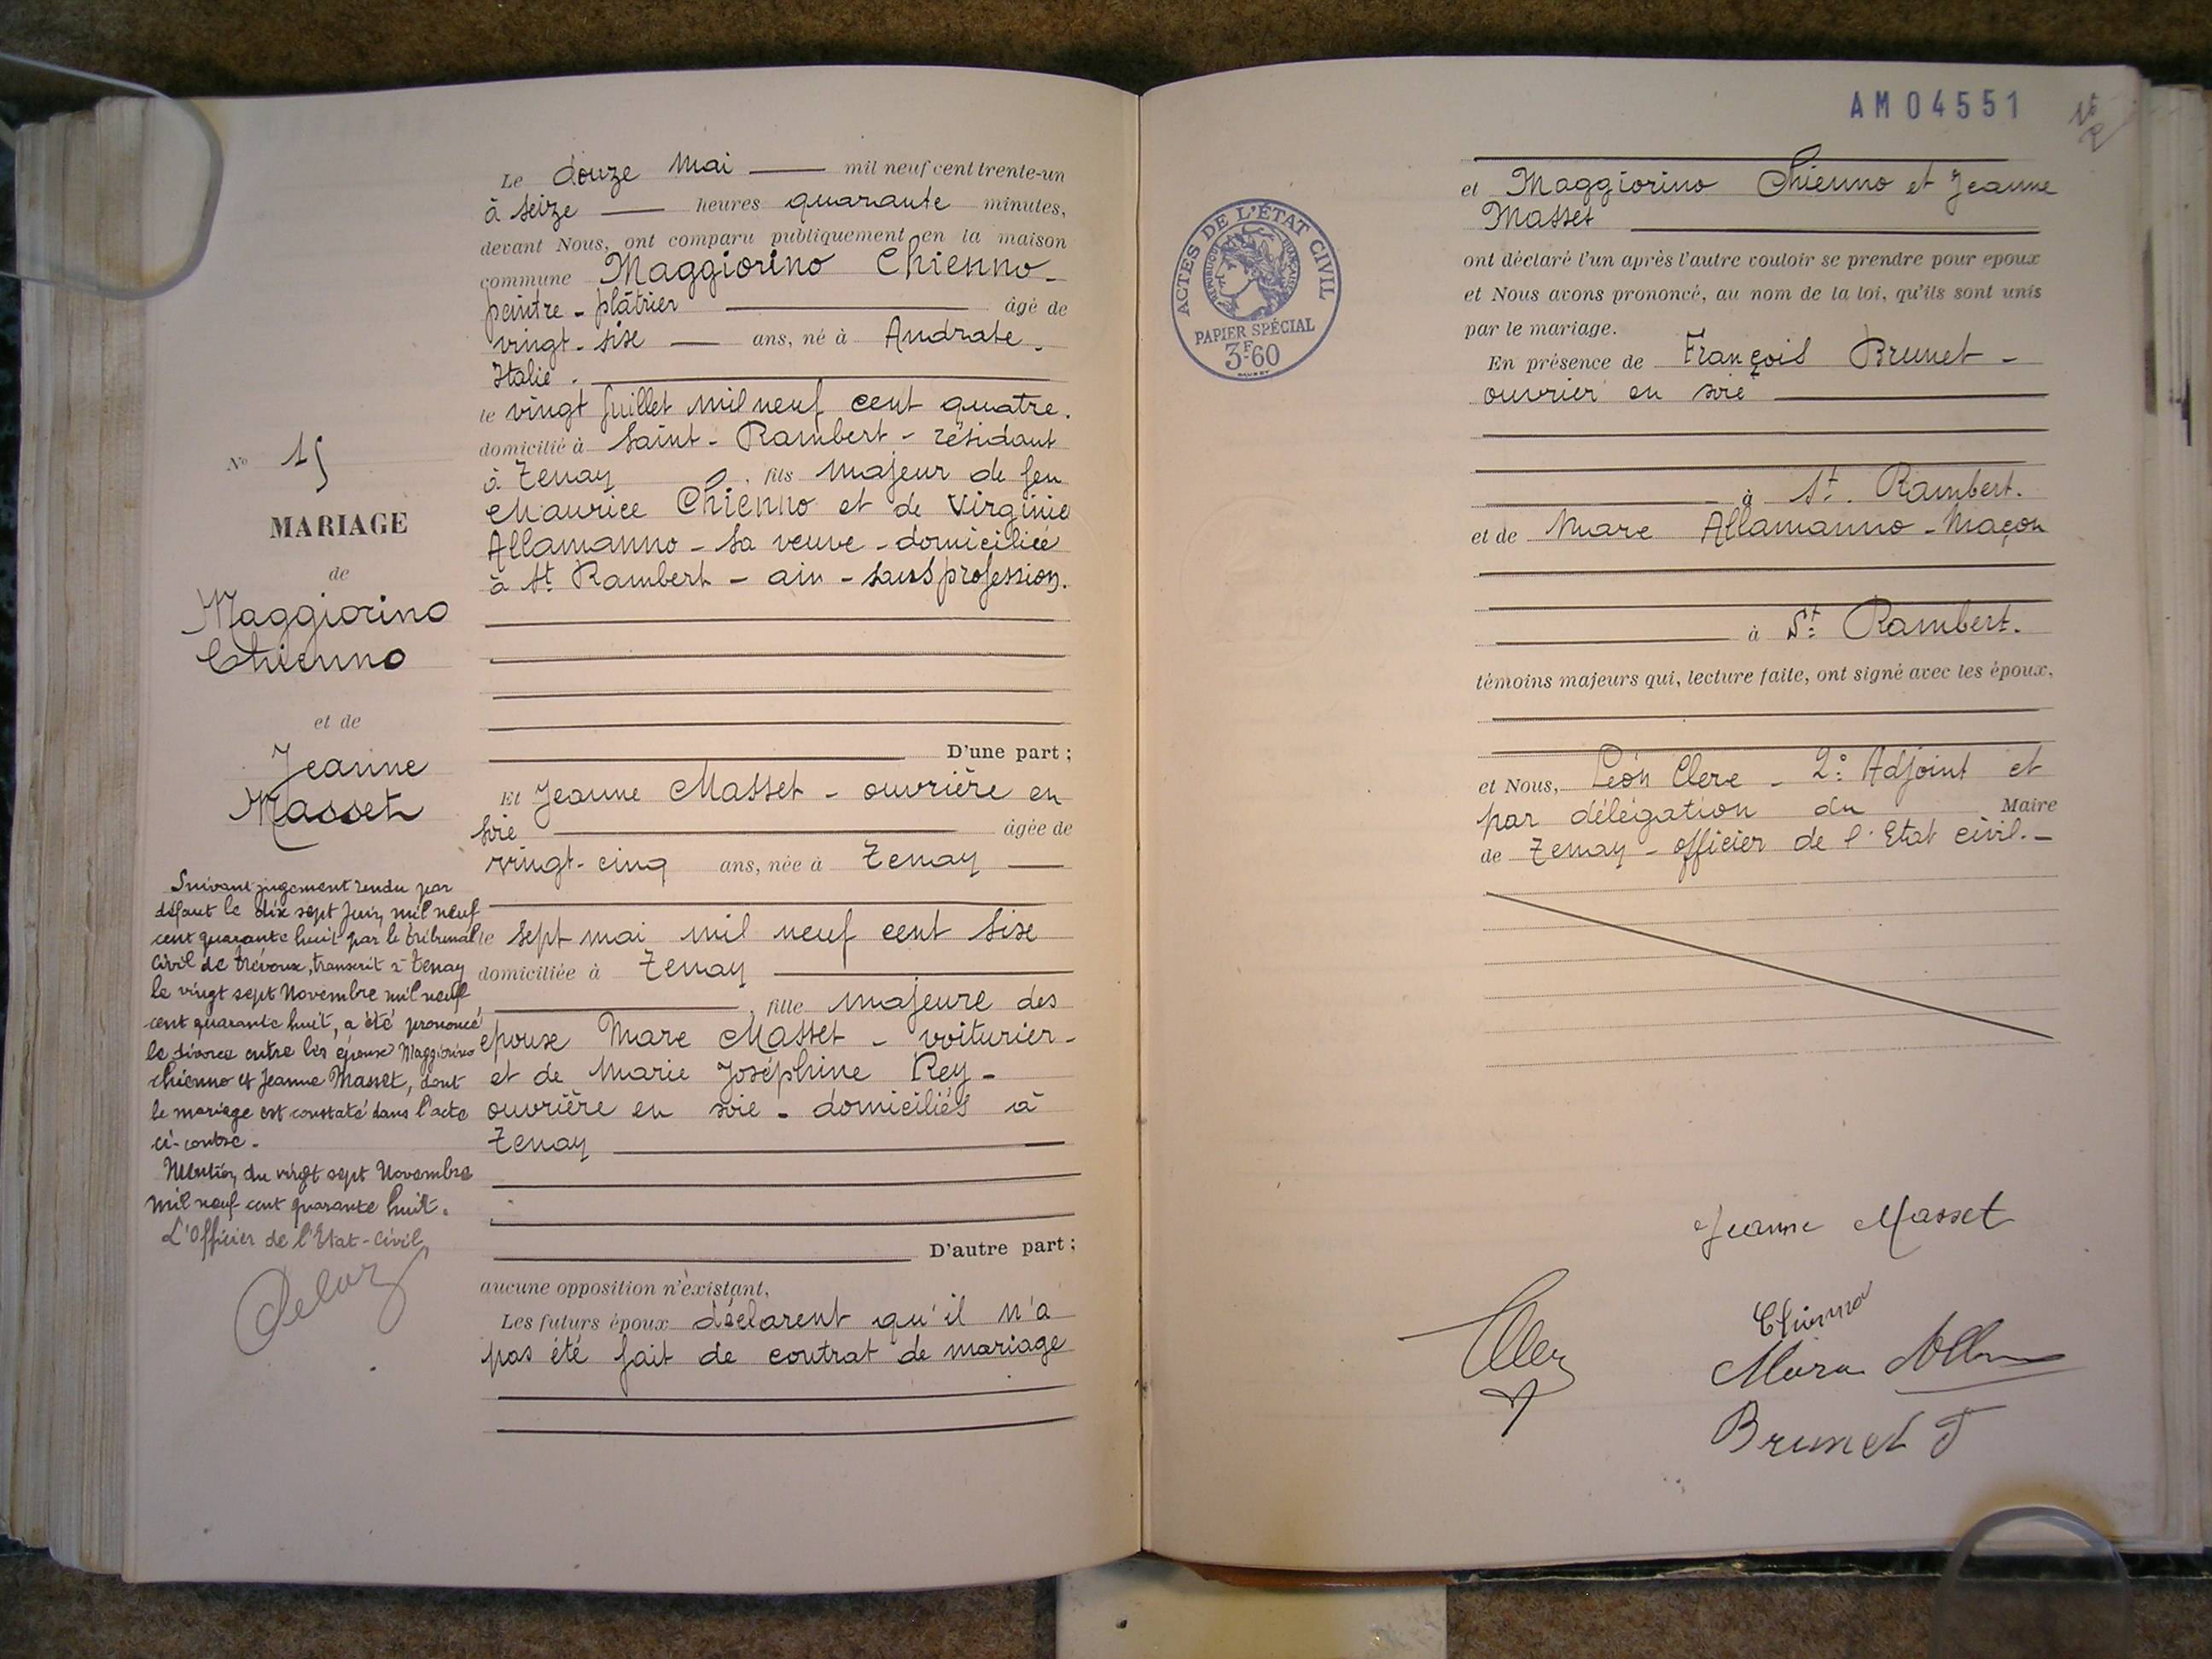 Le douze Mai mil neuf cent trente-un
à seize heures quarante minutes,
devant Nous, ont comparu publiquement en la maison
commune Maggiorino Chienno -
peintre - plâtrier âgé de
vingt - six ans, né à Andrate -
Italie -
le vingt Juillet mil neuf cent quatre.
domicilié à Saint - Rambert - résidant
à Tenay, fils Majeur de feu
Maurice Chienno et de Virginie
Allamanno - sa veuve - domiciliée
à St Rambert - ain - sans profession.
D'une part ;
Et Jeanne Masset - ouvrière en
soie âgée de
vingt - cinq ans, née à Tenay
le sept mai mil neuf cent six
domiciliée à Tenay
, fille majeure des
époux Marc Masset - voiturier -
et de Marie Joséphine Rey -
ouvrière en soie - domiciliés à
Tenay
D'autre part ;
aucune opposition n'existant,
Les futurs époux déclarent qu'il n'a
pas été fait de contrat de mariage
No 15
MARIAGE
de
Maggiorino
Chienno
et de
Jeanne
Masset
Suivant jugement rendu par
défaut le dix sept Juin mil neuf
cent quarante huit par le tribunal
civil de Trévoux, transcrit à Tenay
le vingt sept Novembre mil neuf
cent quarante huit, a été prononcé
le divorce entre les époux Maggiorino
Chienno et Jeanne Masset, dont
le mariage est constaté dans l'acte
ci-contre -
Mention du vingt sept Novembre
mil neuf cent quarante huit.
L'Officier de l'Etat-civil
AM04551
ACTES DE L'ÉTAT CIVIL
RÉPUBLIQUE FRANÇAISE
PAPIER SPÉCIAL
3F60
et Maggiorino Chienno et Jeanne
Masset
ont déclaré l'un après l'autre vouloir se prendre pour époux
et Nous avons prononcé, au nom de la loi, qu'ils sont unis
par le mariage.
En présence de François Brunet -
ouvrier en soie
à St. Rambert.
et de Marc Allamanno - Maçon
à St. Rambert.
témoins majeurs qui, lecture faite, ont signé avec les époux,
et Nous, Léon Clerc - 2e Adjoint et
par délégation du Maire
de Tenay - officier de l'Etat civil. -
Jeanne Masset
Chienno
Brunet F